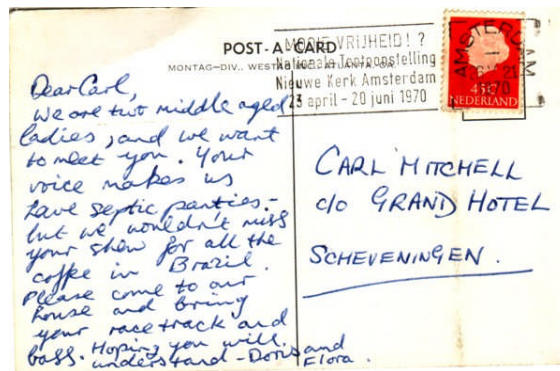 POST-A CARD
MONTAG—DIV., WESTAB INC. ATLANTA, GA.
MOOIE VRIJHEID!?
Nationale Tentoonstelling
Nieuwe Kerk Amsterdam
23 april - 20 juni 1970
AMSTERDAM
1970
NEDERLAND
Dear Carl,
We are two middle aged
ladies, and we want
to meet you. Your
voice makes us
have septic panties -
but we wouldn't miss
your show for all the
coffe in Brazil.
Please come to our
house and bring
your racetrack and
balls. Hoping you will
understand - Doris and
Flora.
CARL MITCHELL
c/o GRAND HOTEL
SCHEVENINGEN.